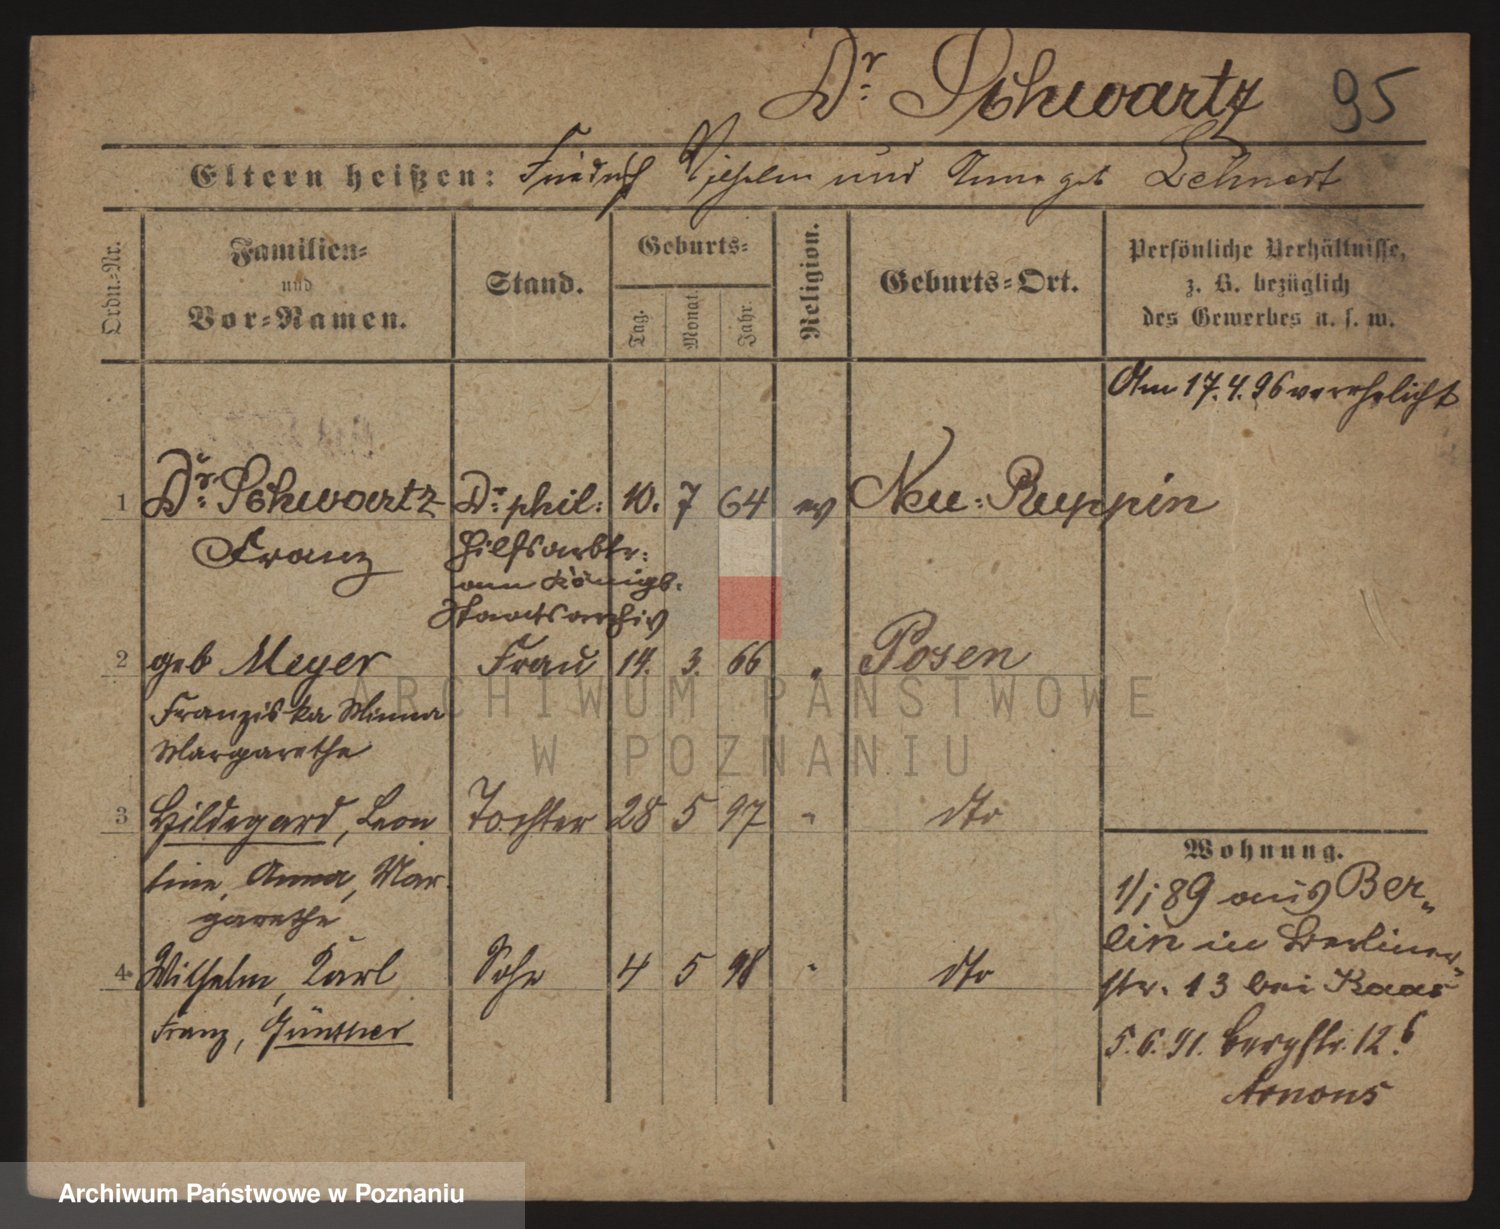 Dr. Schwartz 95
Eltern heißen: Friedrich Wilhelm und Anna geb Lehnert
Ordn.-Nr.
Familien-
und
Vor-Namen.
Stand.
Geburts-
Tag.
Monat.
Jahr.
Religion.
Geburts-Ort.
Persönliche Verhältnisse,
z. B. bezüglich
des Gewerbes u. s. w.
Am 17.4.96 verehelicht
1 Dr. Schwartz Dr. phil: 10. 7 64 ev Neu-Ruppin
Franz Hilfsarbtr:
am Königl.
Staatsarchiv
2 geb Meyer Frau 14. 3. 66 " Posen
Franziska Minna
Margarethe
3 Hildegard, Leon Tochter 28 5 97 " dto
tine, Anna, Mar-
garethe
4 Wilhelm, Karl Sohn 4 5 98 " dto
Franz, Günther
Wohnung.
1/1 89 aus Ber-
lin in Berliner-
str. 13 bei Kaas
5.6.91. Bergstr. 12.b
Arnous
ARCHIWUM PAŃSTWOWE
W POZNANIU
Archiwum Państwowe w Poznaniu